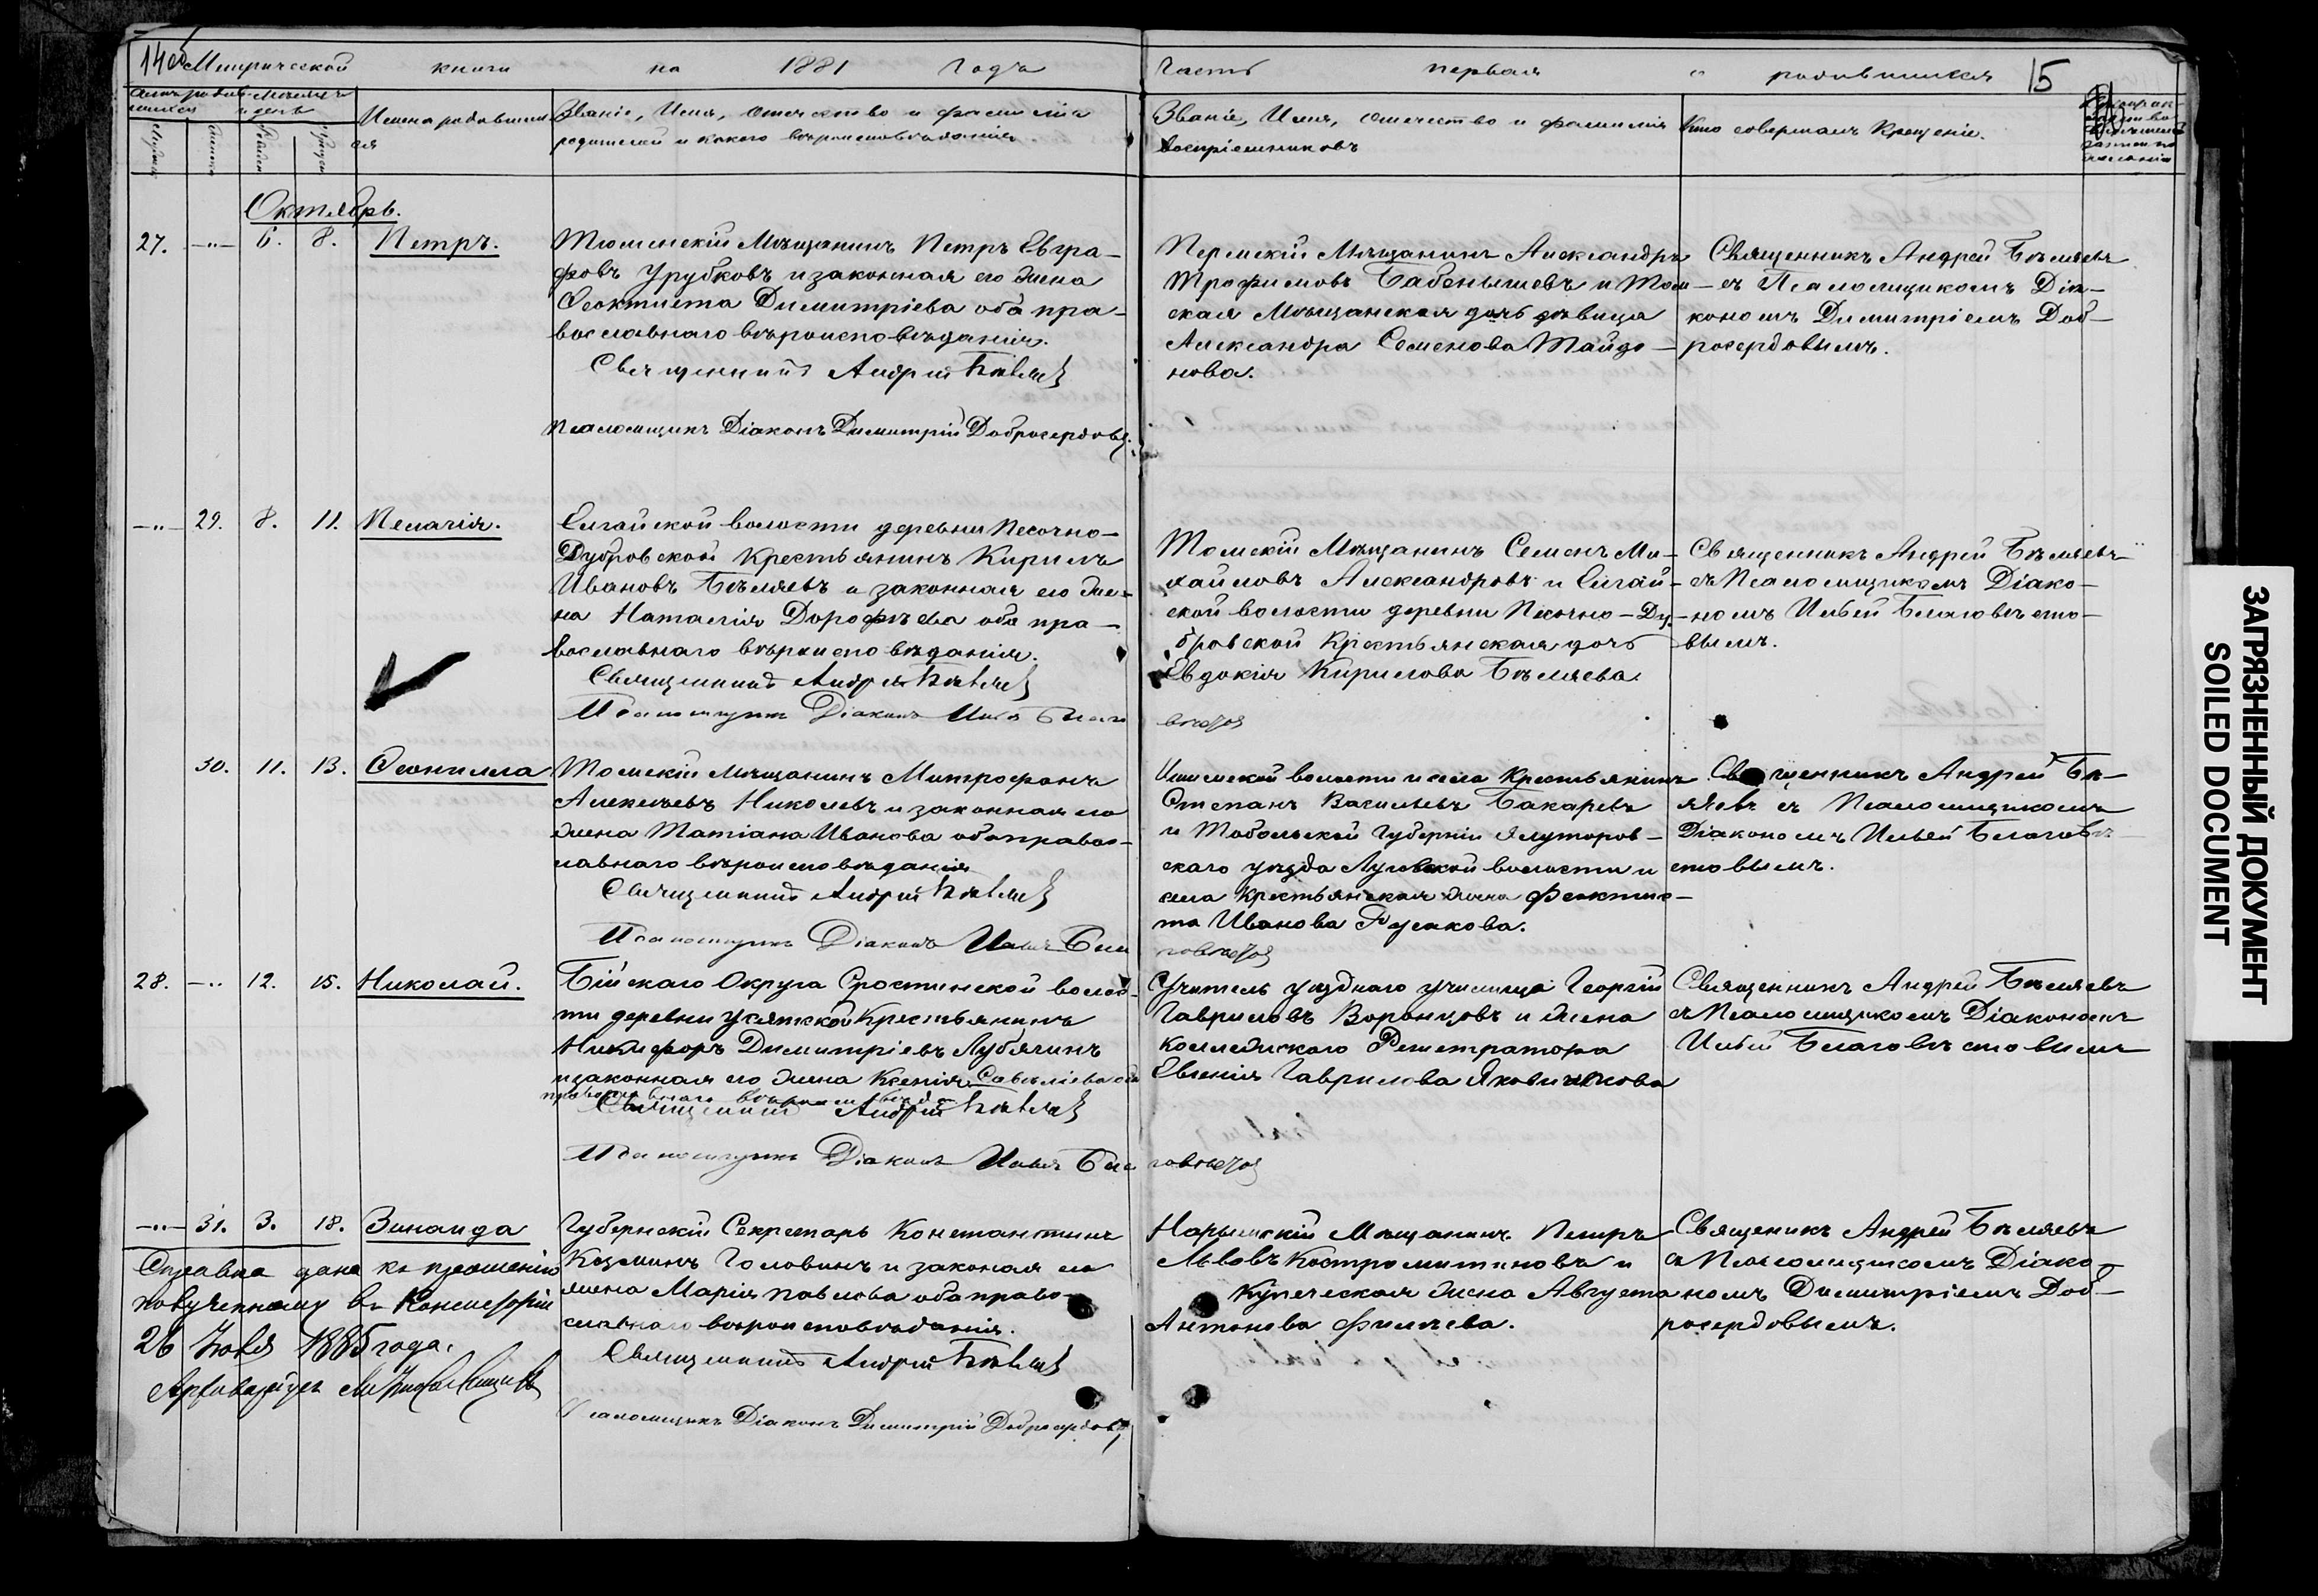 14
Метрической книги на 1881 годъ
Часть первая о родившихся 15
Имена родившихся
Званіе, Имя, отчество и фамилія
родителей и какого вѣроисповѣданія.
Званіе, Имя, отчество и фамилія
воспріемниковъ
Кто совершалъ Крещеніе.
Октябрь.
27. —"— 6. 8. Петръ.
Тюменскій Мѣщанинъ Петръ Евгра-
фовъ Урубковъ и законная его жена
Ѳеоктиста Димитріева оба пра-
вославнаго вѣроисповѣданія.
Священникъ Андрей Бѣляевъ
Псаломщикъ Діаконъ Димитрій Добросердовъ.
Пермскій Мѣщанинъ Александръ
Трофимовъ Бабенышевъ и Том-
ская Мѣщанская дочь дѣвица
Александра Семенова Тайдо-
нова.
Священникъ Андрей Бѣляевъ
съ Псаломщикомъ Діа-
кономъ Димитріемъ Доб-
росердовымъ.
—"— 29. 8. 11. Пелагія.
Елгайской волости деревни Песочно-
Дубровской Крестьянинъ Кирилъ
Ивановъ Бѣляевъ и законная его же-
на Наталія Дорофѣева оба пра-
вославнаго вѣроисповѣданія.
Священникъ Андрей Бѣляевъ
Псаломщикъ Діаконъ Илья Благо
вѣстовъ
Томскій Мѣщанинъ Семенъ Ми-
хайловъ Александровъ и Елгай-
ской волости деревни Песочно-Ду-
бровской Крестьянская дочь
Евдокія Кирилова Бѣляева.
Священникъ Андрей Бѣляевъ
съ Псаломщикомъ Діако-
номъ Ильей Благовѣсто-
вымъ.
30. 11. 13. Ѳеонилла
Томскій мѣщанинъ Митрофанъ
Алексѣевъ Николевъ и законная его
жена Татіана Иванова оба правос-
лавнаго вѣроисповѣданія
Священникъ Андрей Бѣляевъ
Псаломщикъ Діаконъ Илья Бла
говѣстовъ
волости и села Крестьянинъ
Степанъ Васильевъ Бакаревъ
и Тобольской Губерніи Ялуторов-
скаго уѣзда волости и
села Крестьянская жена Феоктис-
та Иванова Русакова.
Священникъ Андрей Бѣ-
ляевъ съ Псаломщикомъ
Діакономъ Ильей Благовѣ-
стовымъ.
28. —" 12. 15. Николай.
Бійскаго Округа Сростинской волос-
ти деревни Усятской Крестьянинъ
Никифоръ Димитріевъ Лубягинъ
и законная его жена Ксенія Савеліева оба
православнаго вѣроисповѣд.
Священникъ Андрей Бѣляевъ
Псаломщикъ Діаконъ Илья Бла
говѣстовъ
Учитель уѣзднаго училища Георгій
Гавриловъ Воронцовъ и жена
коллежскаго Регистратора
Евгенія Гаврилова
Священникъ Андрей Бѣляевъ
съ Псаломщикомъ Діакономъ
Ильей Благовѣстовымъ
—"— 31. 3. 18. Зинаида
Губернскій Секретарь Константинъ
Козминъ Головинъ и законая его
жена Марія Павлова оба право-
славнаго вѣроисповѣданія.
Священникъ Андрей Бѣляевъ
Псаломщикъ Діаконъ Димитрій Добросердовъ
Нарымскій Мѣщанинъ Петръ
Львовъ Костромитиновъ и
Купеческая жена Августа
Антонова
Священикъ Андрей Бѣляевъ
съ Псаломщикомъ Діако-
номъ Димитріемъ Доб-
росердовымъ.
Справка дана къ прошенію
полученному въ Консисторіи
26 Іюля 1885 года.
Архиваріусъ
ЗАГРЯЗНЕННЫЙ ДОКУМЕНТ
SOILED DOCUMENT